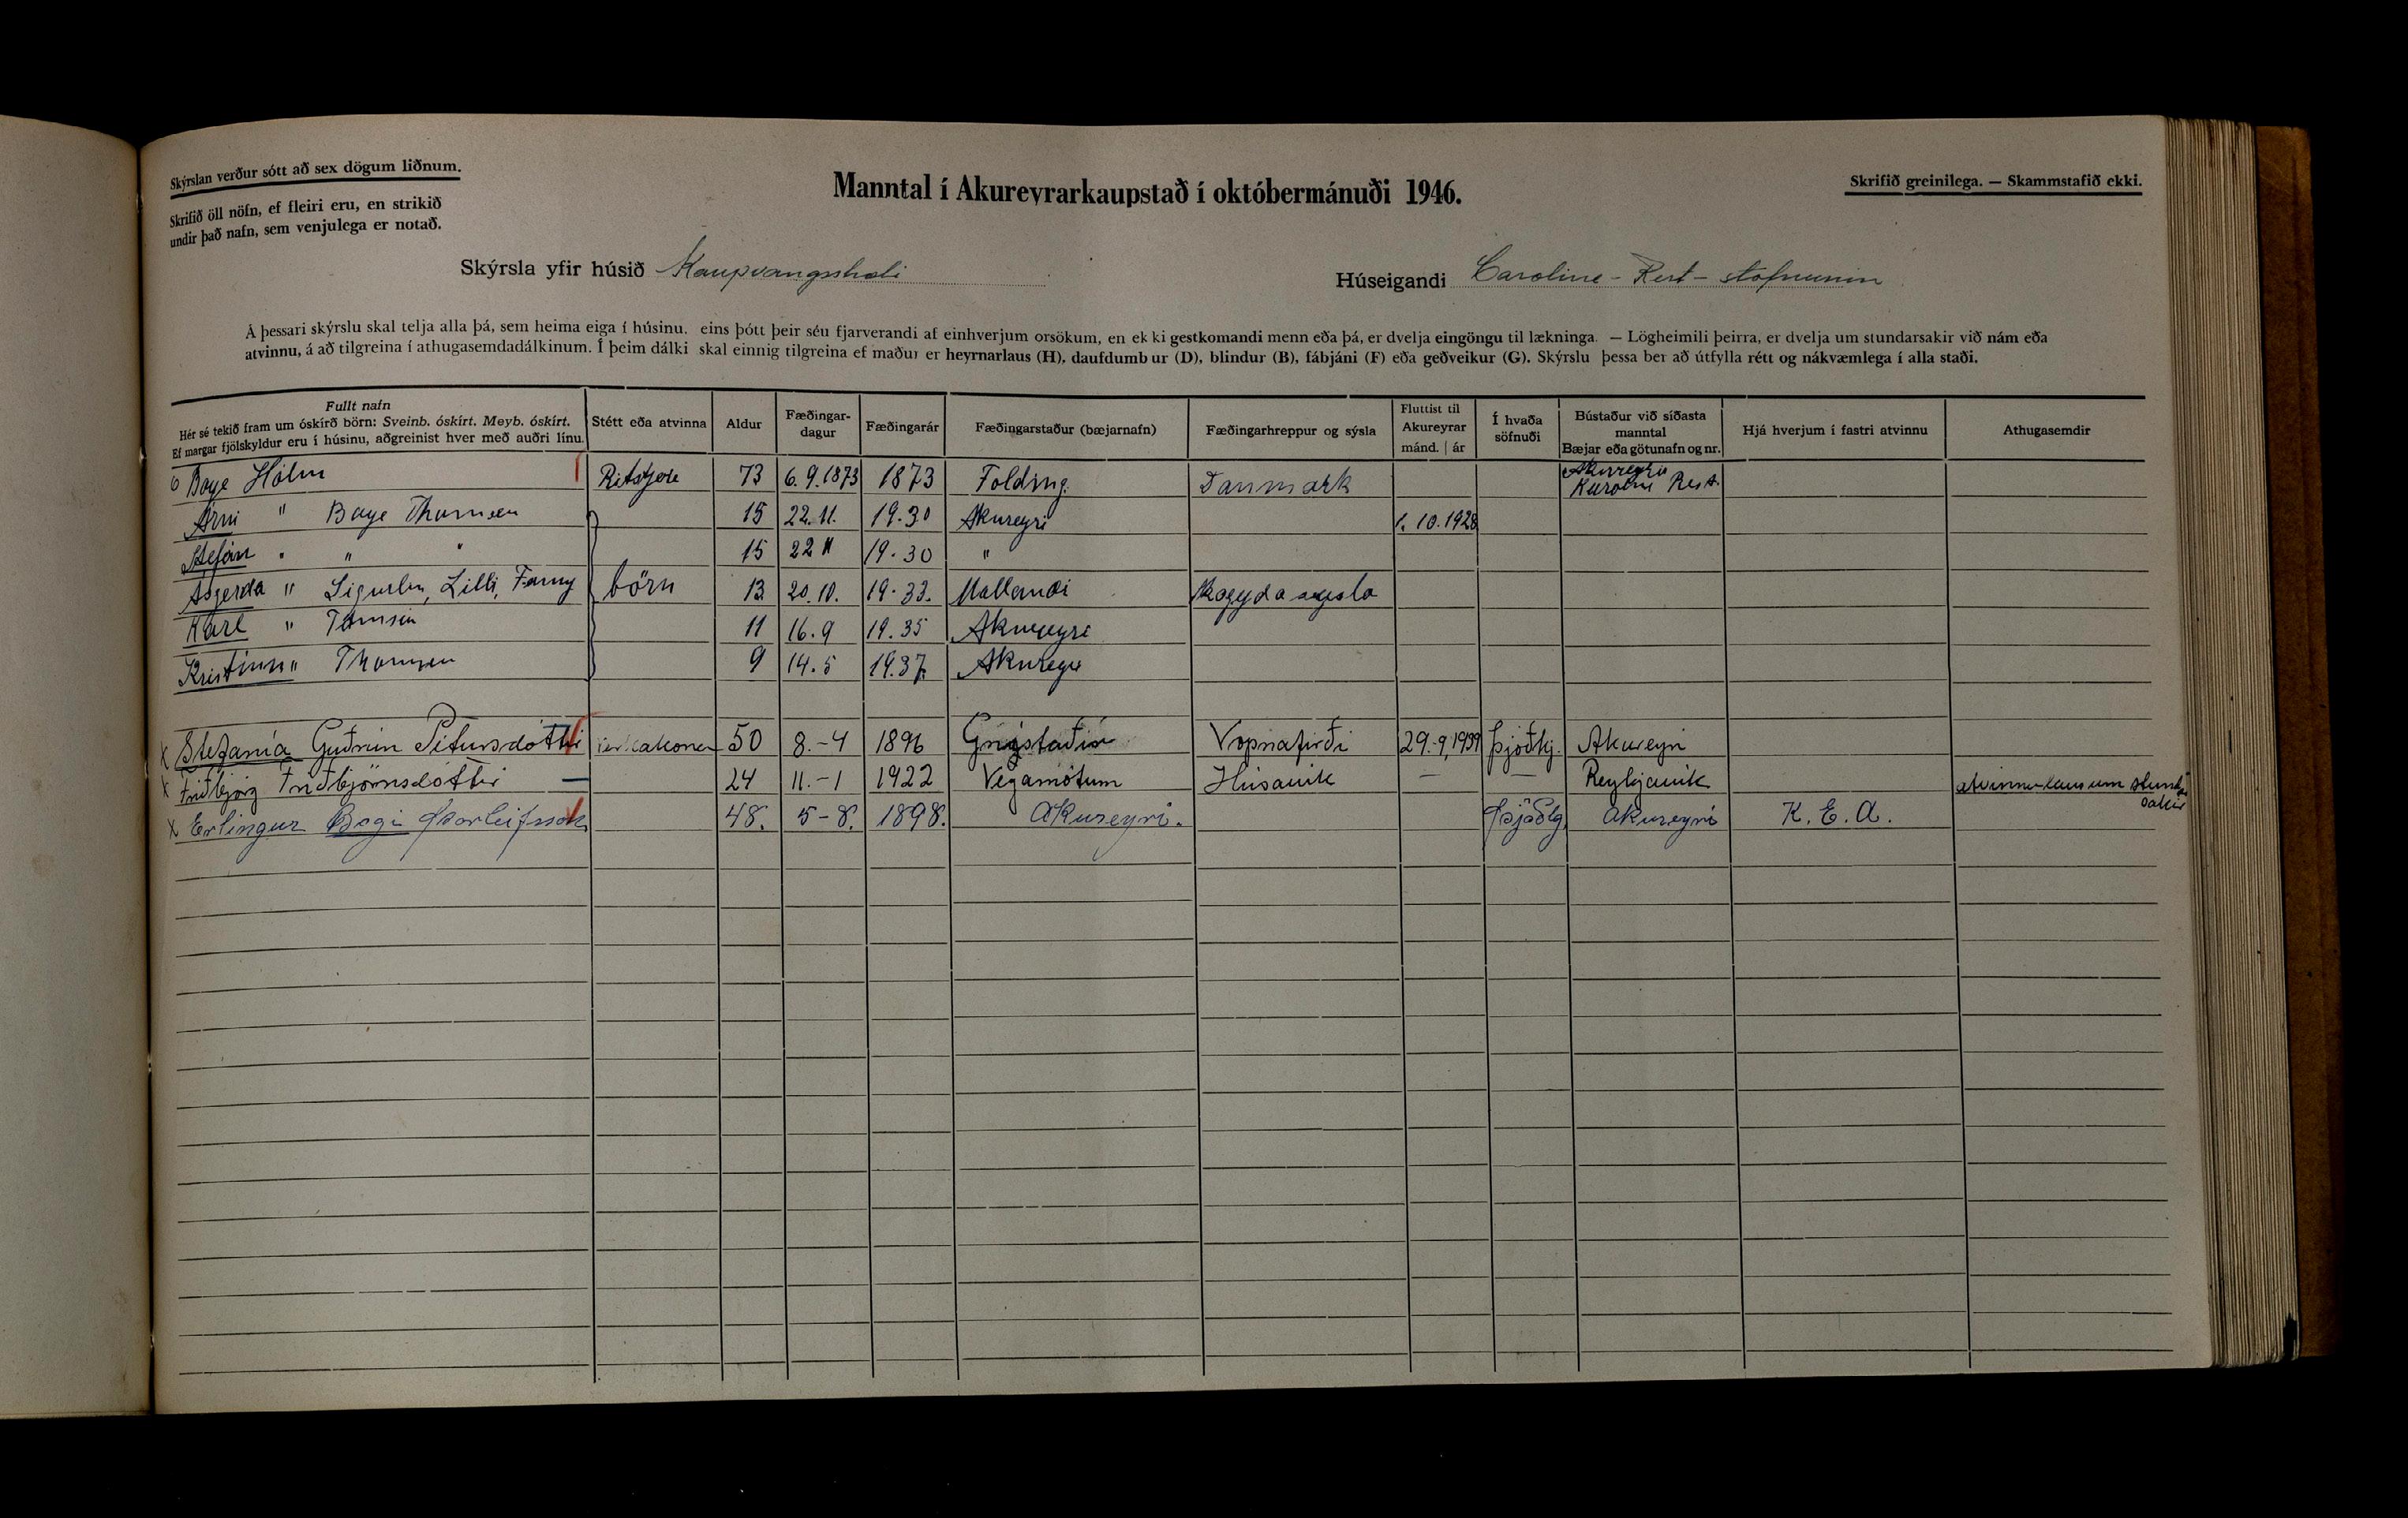 Skýrslan verður sótt að sex dögum liðnum.
Skrifið öll nöfn, ef fleiri eru, en strikið
undir það nafn, sem venjulega er notað.
Manntal í Akureyrarkaupstað í októbermánuði 1946.
Skrifið greinilega. — Skammstafið ekki.
Skýrsla yfir húsið Kaupvangsstræti
Húseigandi Caroline - Rest - stofnunin
Á þessari skýrslu skal telja alla þá, sem heima eiga í húsinu, eins þótt þeir séu fjarverandi af einhverjum orsökum, en ekki gestkomandi menn eða þá, er dvelja eingöngu til lækninga. — Lögheimili þeirra, er dvelja um stundarsakir við nám eða
atvinnu, á að tilgreina í athugasemdadálkinum. Í þeim dálki skal einnig tilgreina ef maður er heyrnarlaus (H), daufdumbur (D), blindur (B), fábjáni (F) eða geðveikur (G). Skýrslu þessa ber að útfylla rétt og nákvæmlega í alla staði.
Fullt nafn
Hér sé tekið fram um óskírð börn: Sveinb. óskírt. Meyb. óskírt.
Ef margar fjölskyldur eru í húsinu, aðgreinist hver með auðri línu.
Stétt eða atvinna
Aldur
Fæðingar-
dagur
Fæðingarár
Fæðingarstaður (bæjarnafn)
Fæðingarhreppur og sýsla
Fluttist til
Akureyrar
mánd. | ár
Í hvaða
söfnuði
Bústaður við síðasta
manntal
Bæjar eða götunafn og nr.
Hjá hverjum í fastri atvinnu
Athugasemdir
Baye Holm 73 6.9.1873 1873 Folding. Danmark Akureyri Karoline Rest.
Árni " Baye Thomsen 15 22.11. 19.30 Akureyri 1.10.1928
Stefán " " " 15 22 11 19.30 "
Asgerda " Sigurlin, Lilli, Fanny börn 13 20.10. 19.33. Mallandi
Karl " Tomsen 11 16.9 19.35 Akureyri
Kristinn " Thomsen 9 14.5 19.37. Akureyri
x Stefanía Guðrún Pétursdóttir verkakona 50 8.-4 1896 Vopnafirði 29.-9.1939 Þjóðkj. Akureyri
x Friðbjörg Friðbjörnsdóttir — 24 11.-1 1922 Vegamótum Húsavik — — Reykjavik
x Erlingur Bogi Þorleifsson 48. 5-8. 1898. Akureyri. Akureyri K. E. A.